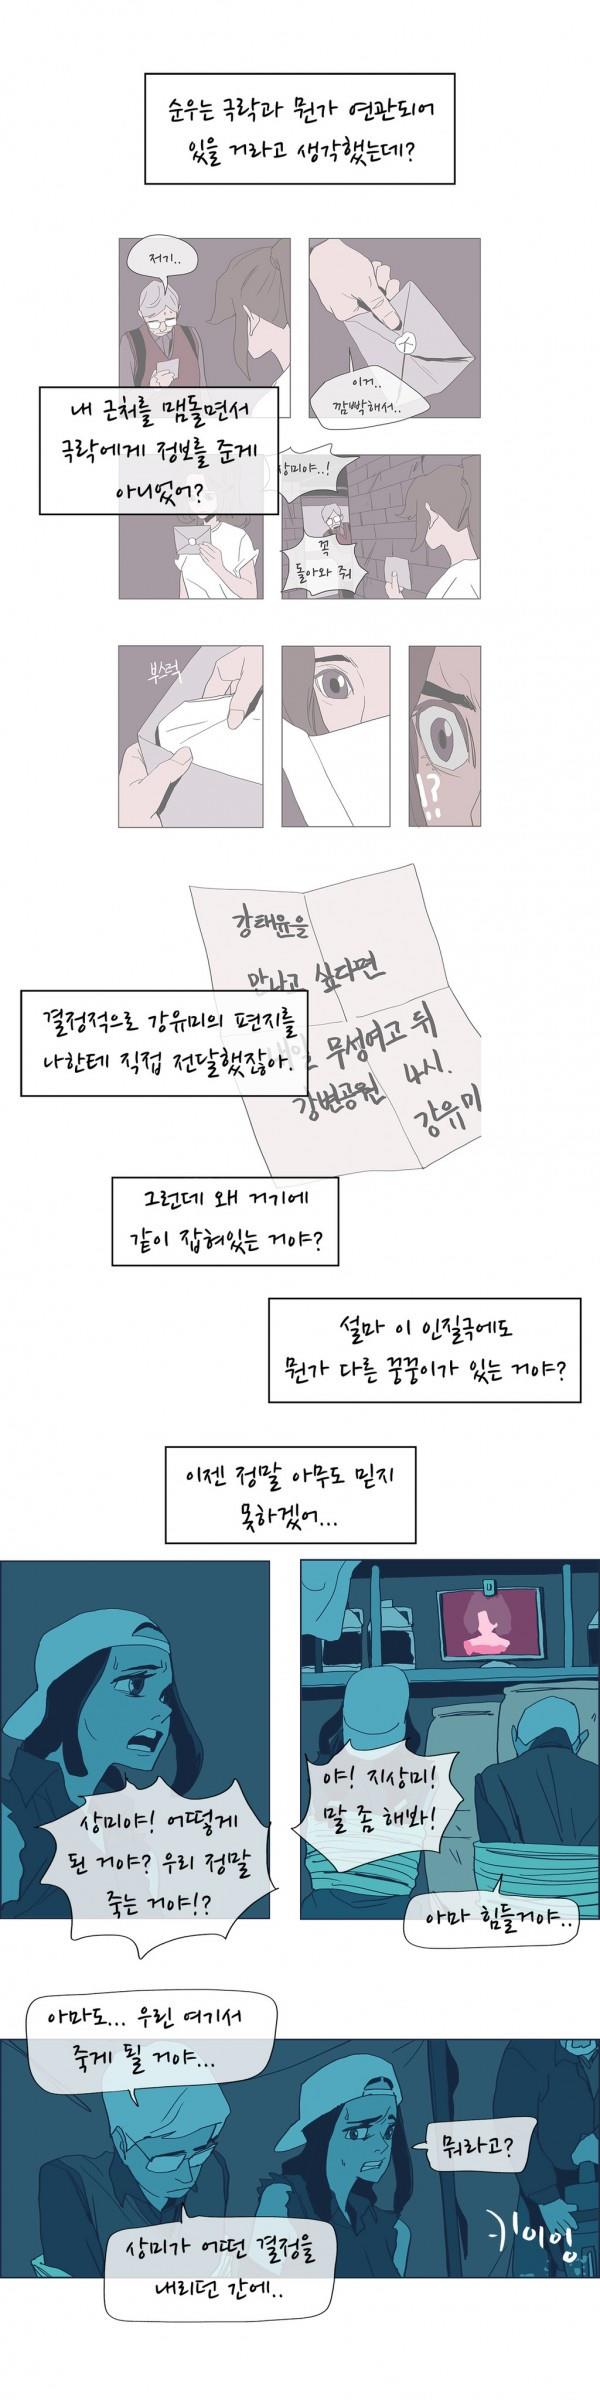 순우는 극락과 뭔가 연관되어
있을 거라고 생각했는데?
저기..
이거..
깜빡해서..
내 근처를 맴돌면서
극락에게 정보를 준게
아니었어?
상미야..!
꼭
돌아와 줘
부스럭
!?
강태윤을
만나고 싶다면
내일 무성여고 뒤
강변공원 4시.
강유미
결정적으로 강유미의 편지를
나한테 직접 전달했잖아.
그런데 왜 거기에
같이 잡혀있는 거야?
설마 이 인질극에도
뭔가 다른 꿍꿍이가 있는 거야?
이젠 정말 아무도 믿지
못하겠어...
상미야! 어떻게
된 거야? 우리 정말
죽는 거야!?
야! 지상미!
말 좀 해봐!
아마 힘들거야..
아마도... 우린 여기서
죽게 될 거야...
뭐라고?
상미가 어떤 결정을
내리던 간에..
키이잉